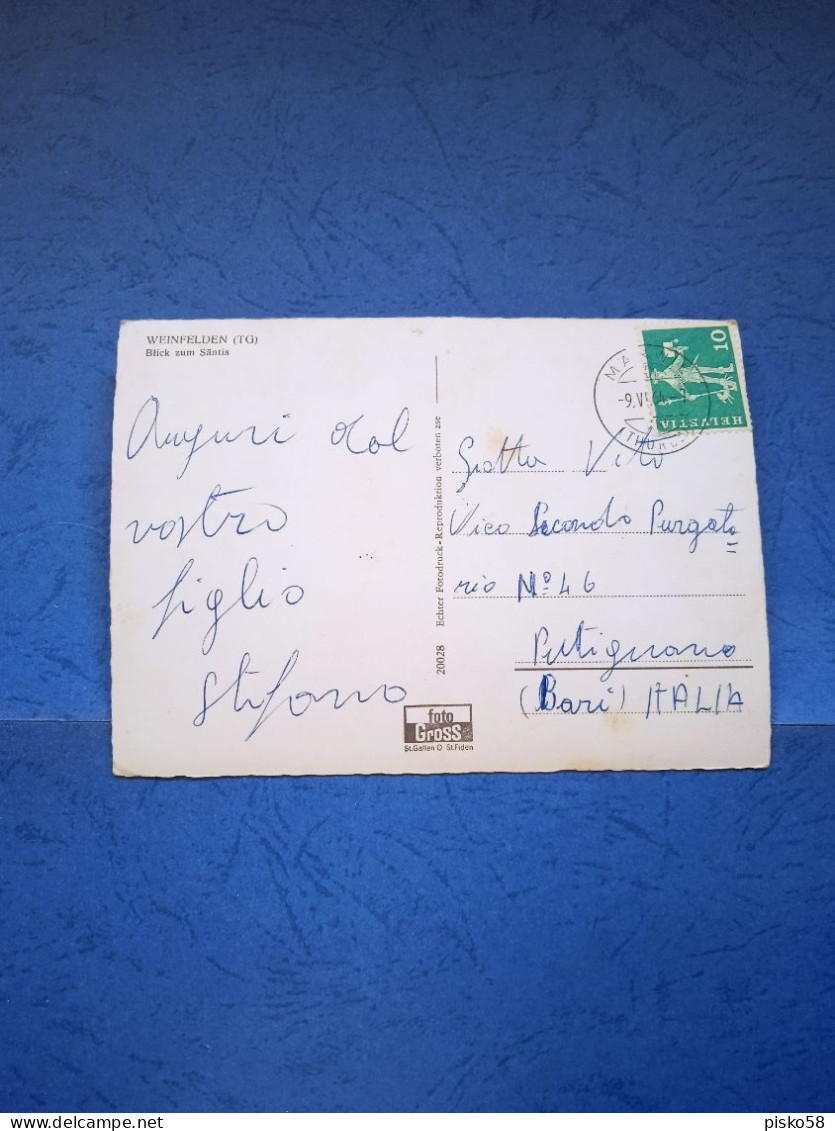 WEINFELDEN (TG)
Blick zum Säntis
Auguri dal
vostro
figlio
Stefano
20028 Echter Fotodruck-Reproduktion verboten zse
foto
Gross
St.Gallen O St.Fiden
10
HELVETIA
-9.VI
(THURG.)
Grotta Vito
Vico Secondo Purgato
=
rio Nº 46
Putignano
(Bari) ITALIA
pisko58